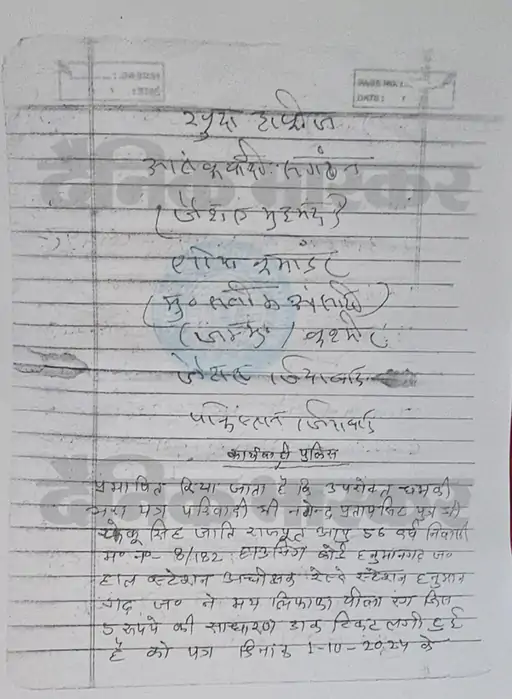 PAGE NO.:
DATE: / /
खुदा हाफीज
आतंकवादी संगठन
(जैश ए मुहमद)
एरिया कमांडर
(मु० सलीम अंसारी)
(जम्मू) कश्मीर
जैश ए जिंदाबाद
पाकिस्तान जिंदाबाद
कार्यवाही पुलिस
प्रमाणित किया जाता है कि उपरोक्त धमकी
भरा पत्र परिवादी श्री नगेन्द्र प्रतापसिंह पुत्र श्री
सिंह जाति राजपूत आयु 56 वर्ष निवासी
म० न० 8/182 हाउसिंग बोर्ड हनुमानगढ ज०
हाल स्टेशन अधीक्षक रेल्वे स्टेशन हनुमान
गढ ज० ने मय लिफाफा पीला रंग जिस
5 रूपये की साधारण डाक टिकट लगी हुई
है को पत्र दिनांक 1-10-2024 के
दैनिक भास्कर
दैनिक भास्कर